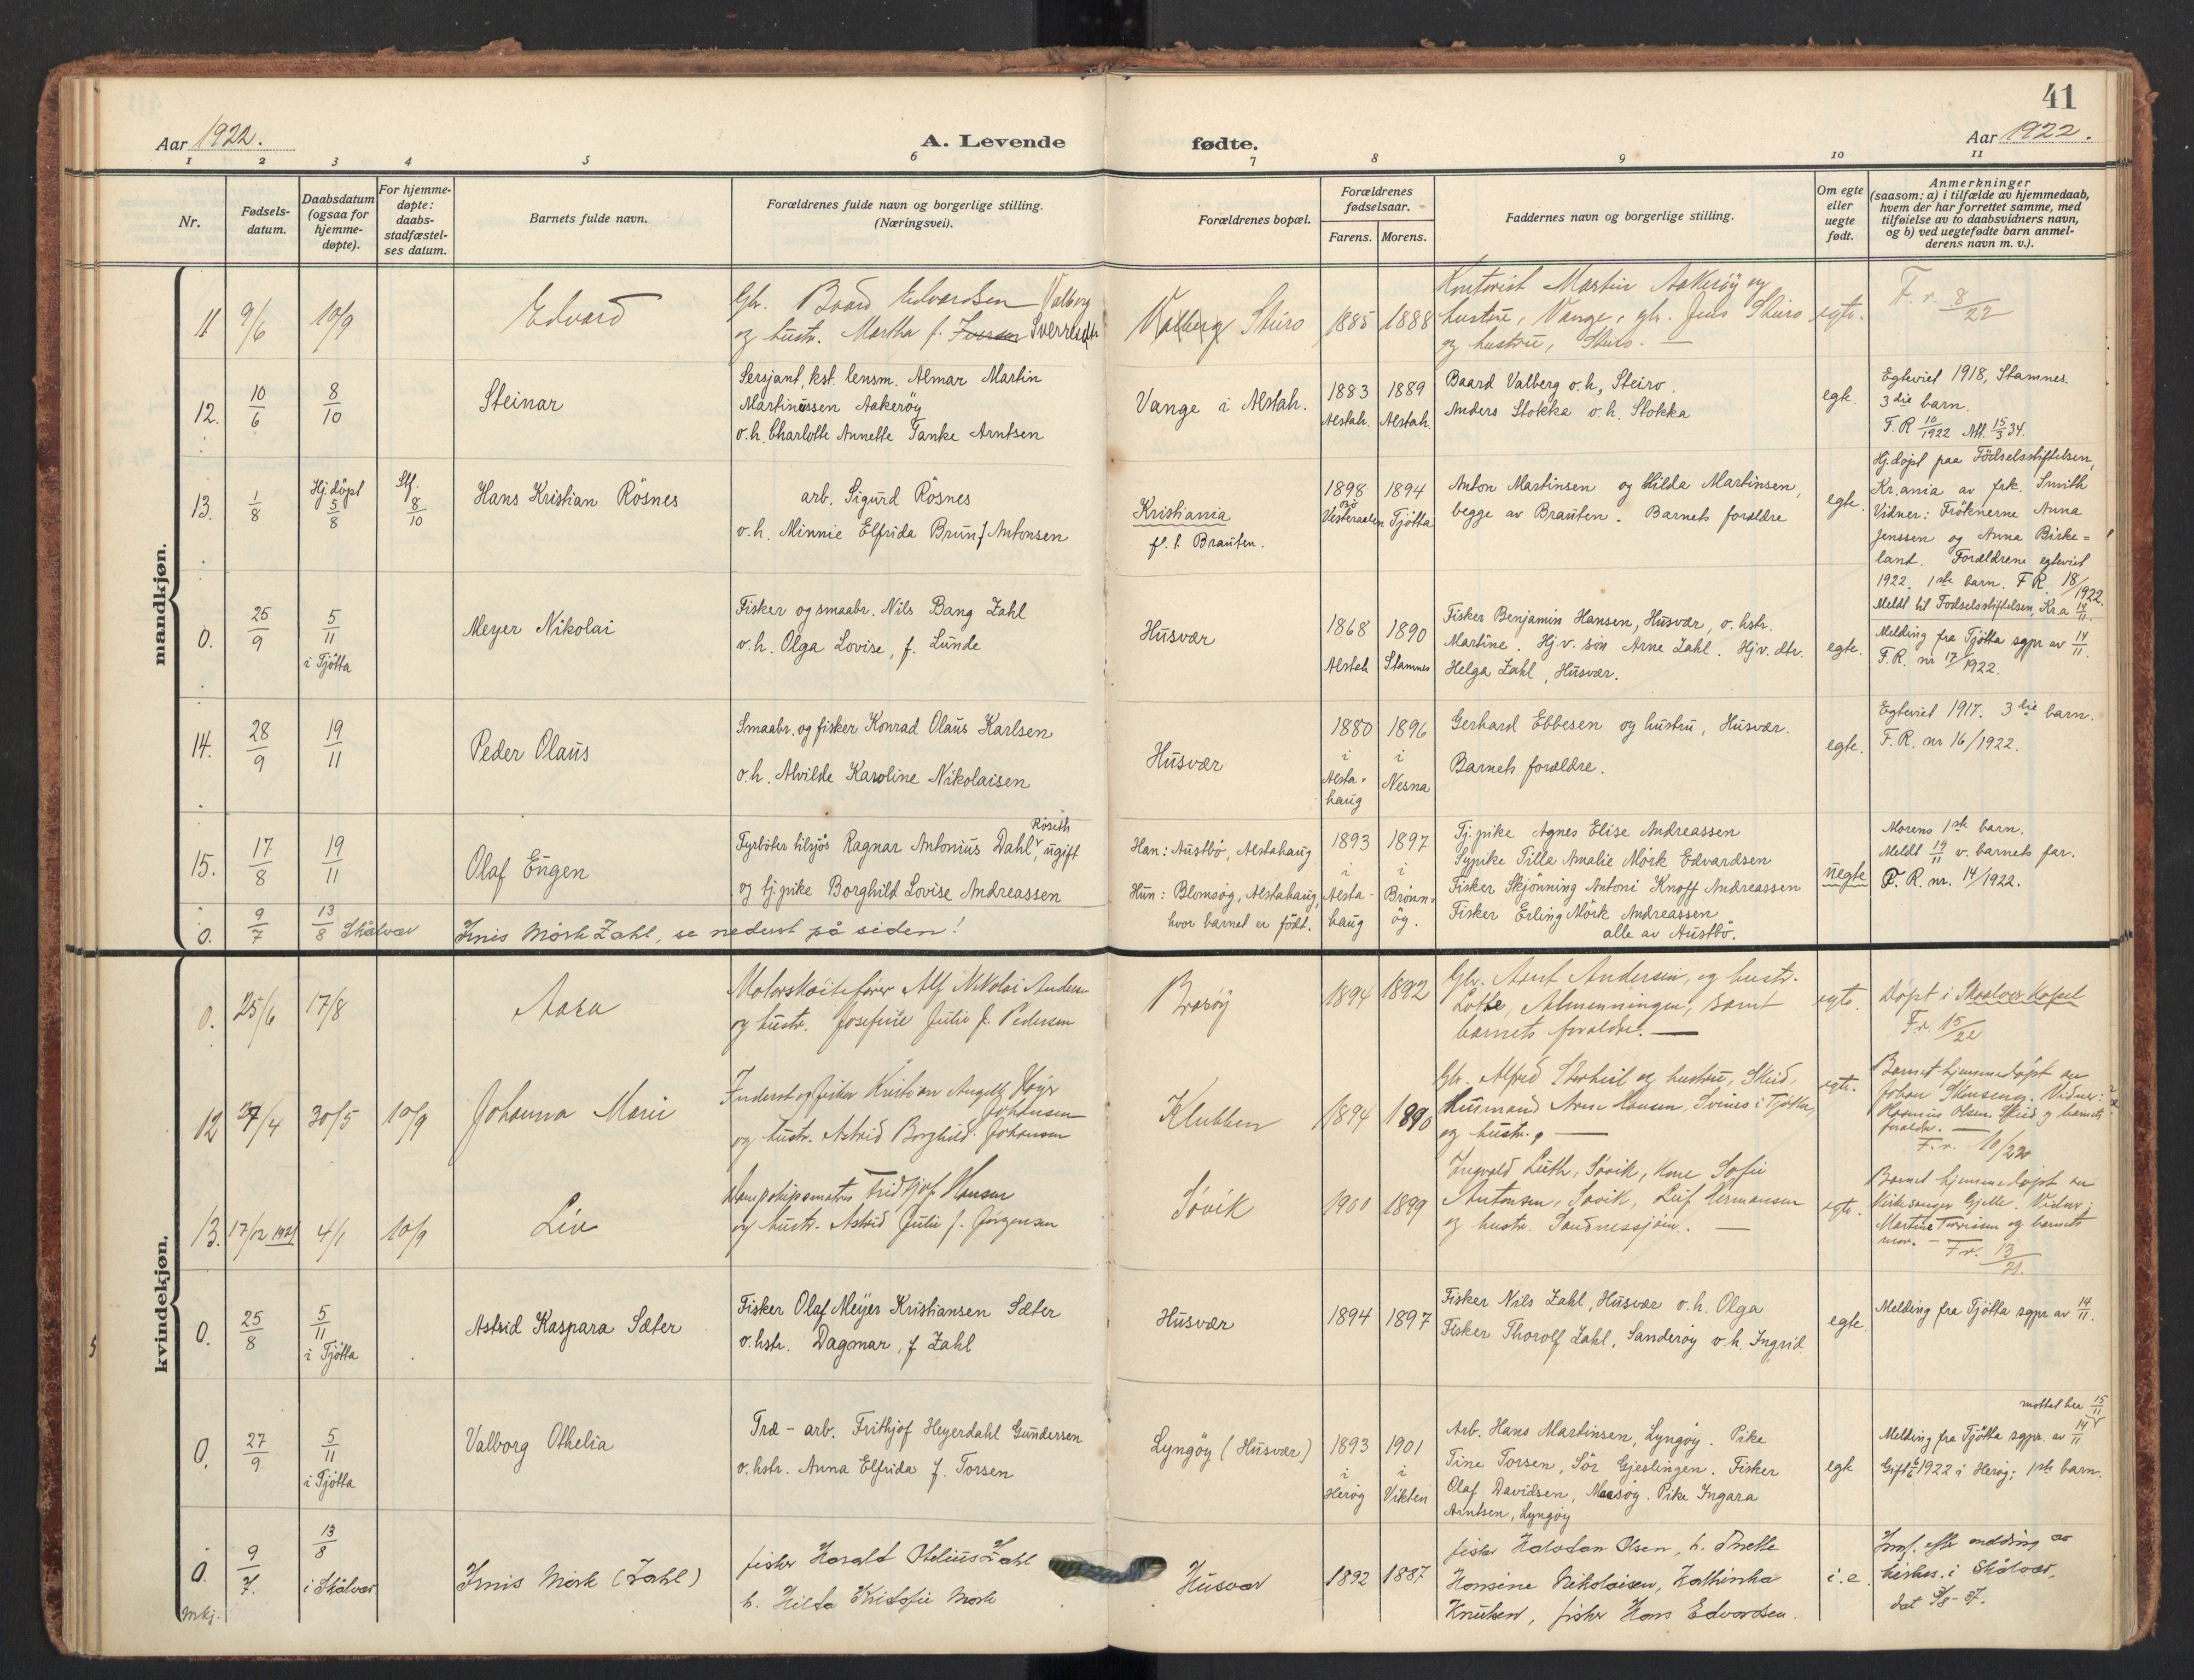 41
Aar 1922.
A. Levende fødte.
Aar 1922.
1 2 3 4 5 6 7 8 9 10 11
Nr.
Fødsels-
datum.
Daabsdatum
(ogsaa for
hjemme-
døpte).
For hjemme-
døpte:
daabs-
stadfæstel-
ses datum.
Barnets fulde navn.
Forældrenes fulde navn og borgerlige stilling.
(Næringsvei).
Forældrenes bopæl.
Forældrenes
fødselsaar.
Farens. Morens.
Faddernes navn og borgerlige stilling.
Om egte
eller
uegte
født.
Anmerkninger
(saasom: a) i tilfælde av hjemmedaab,
hvem der har forrettet samme, med
tilføielse av to daabsvidners navn,
og b) ved uegtefødte barn anmel-
derens navn m. v.).
mandkjøn.
11 9/6 10/9
Edvard
Gbr. Baard Edvardsen Valberg
og hustr. Martha f. Iversen Sverresdtr.
Valberg Stiro
1885 1888
Kontorist Martin Aakerøy og
hustru, Vange, gbr. Jens Stiro
og hustru, Stiro.
egte.
F. r. 8/22
12. 10/6 8/10
Steinar
Sersjant, kst. lensm. Almar Martin
Martinussen Aakerøy
o.h. Charlotte Annette Tanke Arntsen
Vange i Alstah.
1883 1889
Alstah. Alstah.
Baard Valberg o.h., Steiro.
Anders Stokka o.h. Stokka
egte.
Egteviet 1918, Stamnes.
3die barn.
F.R 10/1922 Att. 15/3 34.
13. 1/8 Hj.døpt 5/8 Stf. 8/10
Hans Kristian Rösnes
arb. Sigurd Rösnes
o.h. Minnie Elfrida Brun f Antonsen
Kristiania
f.t. Brauten.
1898 1894
Bø
Vesteraalen Tjøtta
Anton Martinsen og Hilda Martinsen,
begge av Brauten. Barnets forældre
egte.
Hj.døpt paa Födselsstiftelsen,
Kr.ania av frk. Smith
Vidner: Fröknerne Anna
Jenssen og Anna Birke=
land. Forældrene egteviet
1922. 1ste barn. F.R. 18/1922.
Meldt til Födselsstiftelsen, Kr.a 14/11.
0. 25/9 5/11
i Tjötta
Meyer Nikolai
Fisker og smaabr. Nils Bang Zahl
o.h. Olga Lovise, f. Lunde
Husvær
1868 1890
Alstah Stamnes
Fisker Benjamin Hansen, Husvær, o. hstr.
Martine. Hj.v. sön Arne Zahl. Hjv. dtr.
Helga Zahl, Husvær.
egte.
Melding fra Tjötta sgpr av 14/11.
F.R. nr 17/1922.
14. 28/9 19/11
Peder Olaus
Smaabr. og fisker Konrad Olaus Karlsen
o.h. Alvilde Karoline Nikolaisen
Husvær
1880 1896
i i
Alsta-
haug Nesna
Gerhard Ebbesen og hustru, Husvær.
Barnets forældre.
egte.
Egteviet 1917. 3die barn.
F.R. nr 16/1922.
15. 17/8 19/11
Olaf Eugen
Röseth
Fyrböter tilsjös Ragnar Antonius Dahl, ugift
og tj.pike Borghild Lovise Andreassen
Han: Austbö, Alstahaug
Hun: Blomsög, Alstahaug,
hvor barnet er födt.
1893 1897
i i
Alsta-
haug Brönn-
öy.
Tj.pike Agnes Elise Andreassen
Sypike Tilla Amalie Mörk Edvardsen
Fisker Skjönning Antoni Knoff Andreassen
Fisker Erling Mörk Andreassen
alle av Austbö.
uegte
Morens 1ste barn.
Meldt 19/11 v. barnets far.
F.R. nr. 14/1922.
0. 9/7 13/8 Skålvær
Jenis Mørk Zahl, se nederst på siden!
kvindekjøn.
0. 25/6 17/8
Aasa
Motorskøitefører Alf Nikolai Andersen
og hustr. Josefine Julie f. Pedersen
Brasøy
1894 1892
Gbr. Arnt Andersen, og hustr.
Lotte, Almenningen, samt
barnets forældre.
egte.
Døpt i Skaalvær kapel
F.r. 15/22
12 27/4 30/5 10/9
Johanna Marie
Inderst og fisker Kristian Angell
Johansen
og hustr. Astrid Borghild Johansen
Klubben
1894 1890
Gbr. Alfred Storheil og hustru, Skeid,
Husmand Arne Hansen, Svines i Tjøtta,
og hustr.
egte.
Barnet hjemmedøpt av
Johan Skonseng. Vidner:
Rasmus Olsen Skeid og barnets
forældre.
F.r. 10/22
13. 17/12 1921 4/1 10/9
Liv
Dampskipsmatros Fridtjof Hansen
og hustr. Astrid Julie f. Jørgensen
Søvik
1900 1899
Ingvald Luth, Søvik, Kone Sofie
Antonsen, Søvik, Leif Hermansen
og hustr. Sandnessjøen.
egte.
Barnet hjemmedøpt av
Kirkesanger Gjelle. Vidner:
Martine og barnets
mor. F.r. 13/21.
0. 25/8 5/11
i Tjötta
Astrid Kaspara Sæter
Fisker Olaf Meyer Kristiansen Sæter
o.hstr. Dagmar, f Zahl
Husvær
1894 1897
Fisker Nils Zahl, Husvær o.h. Olga
Fisker Thorolf Zahl, Sanderöy o.h. Ingrid
egte.
Melding fra Tjötta sgpr av 14/11.
0. 27/9 5/11
i Tjötta
Valborg Othelia
Træ-arb. Frithjof Heyerdahl Gundersen
o.hstr. Anna Elfrida f. Torsen
Lyngöy (Husvær)
1893 1901
i i
Heröy Vikten
Arb. Hans Martinsen, Lyngöy. Pike
Tine Torsen, Sör Gjeslingen. Fisker
Olaf Davidsen, Maasöy. Pike Ingara
Arntsen, Lyngöy
egte
mottat her 15/11
Melding fra Tjötta sgpr. av 14/11
Gift 1922 i Heröy; 1ste barn.
0. 9/7. 13/8
i Skålvær
mkj.
Jenis Mørk (Zahl)
fisker Harald Otelius Zahl
h. Hilda Kristofie Mørk
Husvær
1892 1887
fisker Halvdan Olsen, h. Anette
Hansine Nikolaisen, Kathinka
Knutsen, fisker Hans Edvardsen.
i.e.
Innf. efter melding av
kirkes. i Skålvær,